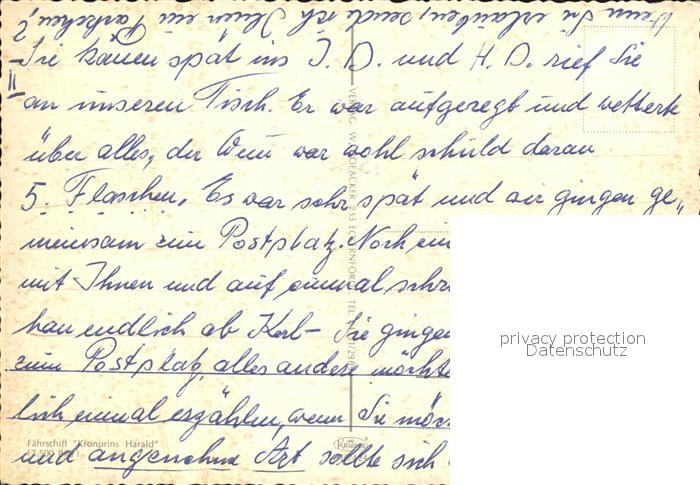 Wenn Sie erlauben, sende ich Ihnen ein Päckchen?
Sie kamen spät ins J. D. und H. D. rief Sie
II
an unseren Tisch. Er war aufgeregt und wetterte
über alles, der Wein war wohl schuld daran
5. Flaschen. Es war sehr spät und wir gingen ge„
meinsam zum Postplatz. Noch ein
mit Ihnen und auf einmal schr
hau endlich ab Karl – Sie gingen
zum Postplatz, alles andere möchte
lich einmal erzählen, wenn Sie möc
und angenehme Art sollte sich
Fährschiff "Kronprins Harald"
(7.500 BRT)
Krüger
privacy protection
Datenschutz